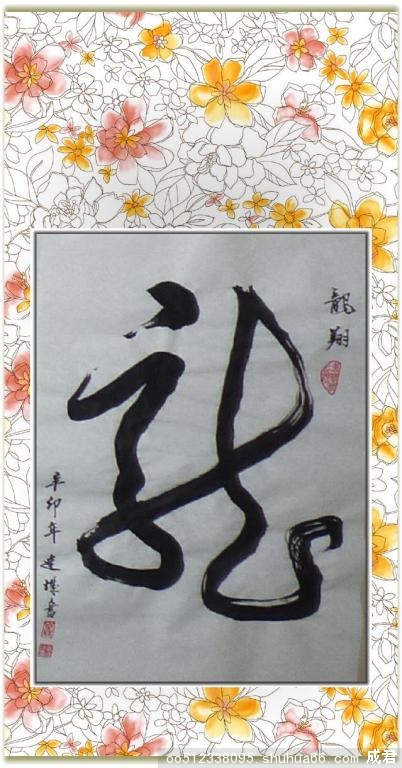 龍翔
龍
辛卯年建書
oo512338095 shuhua66.com 成君